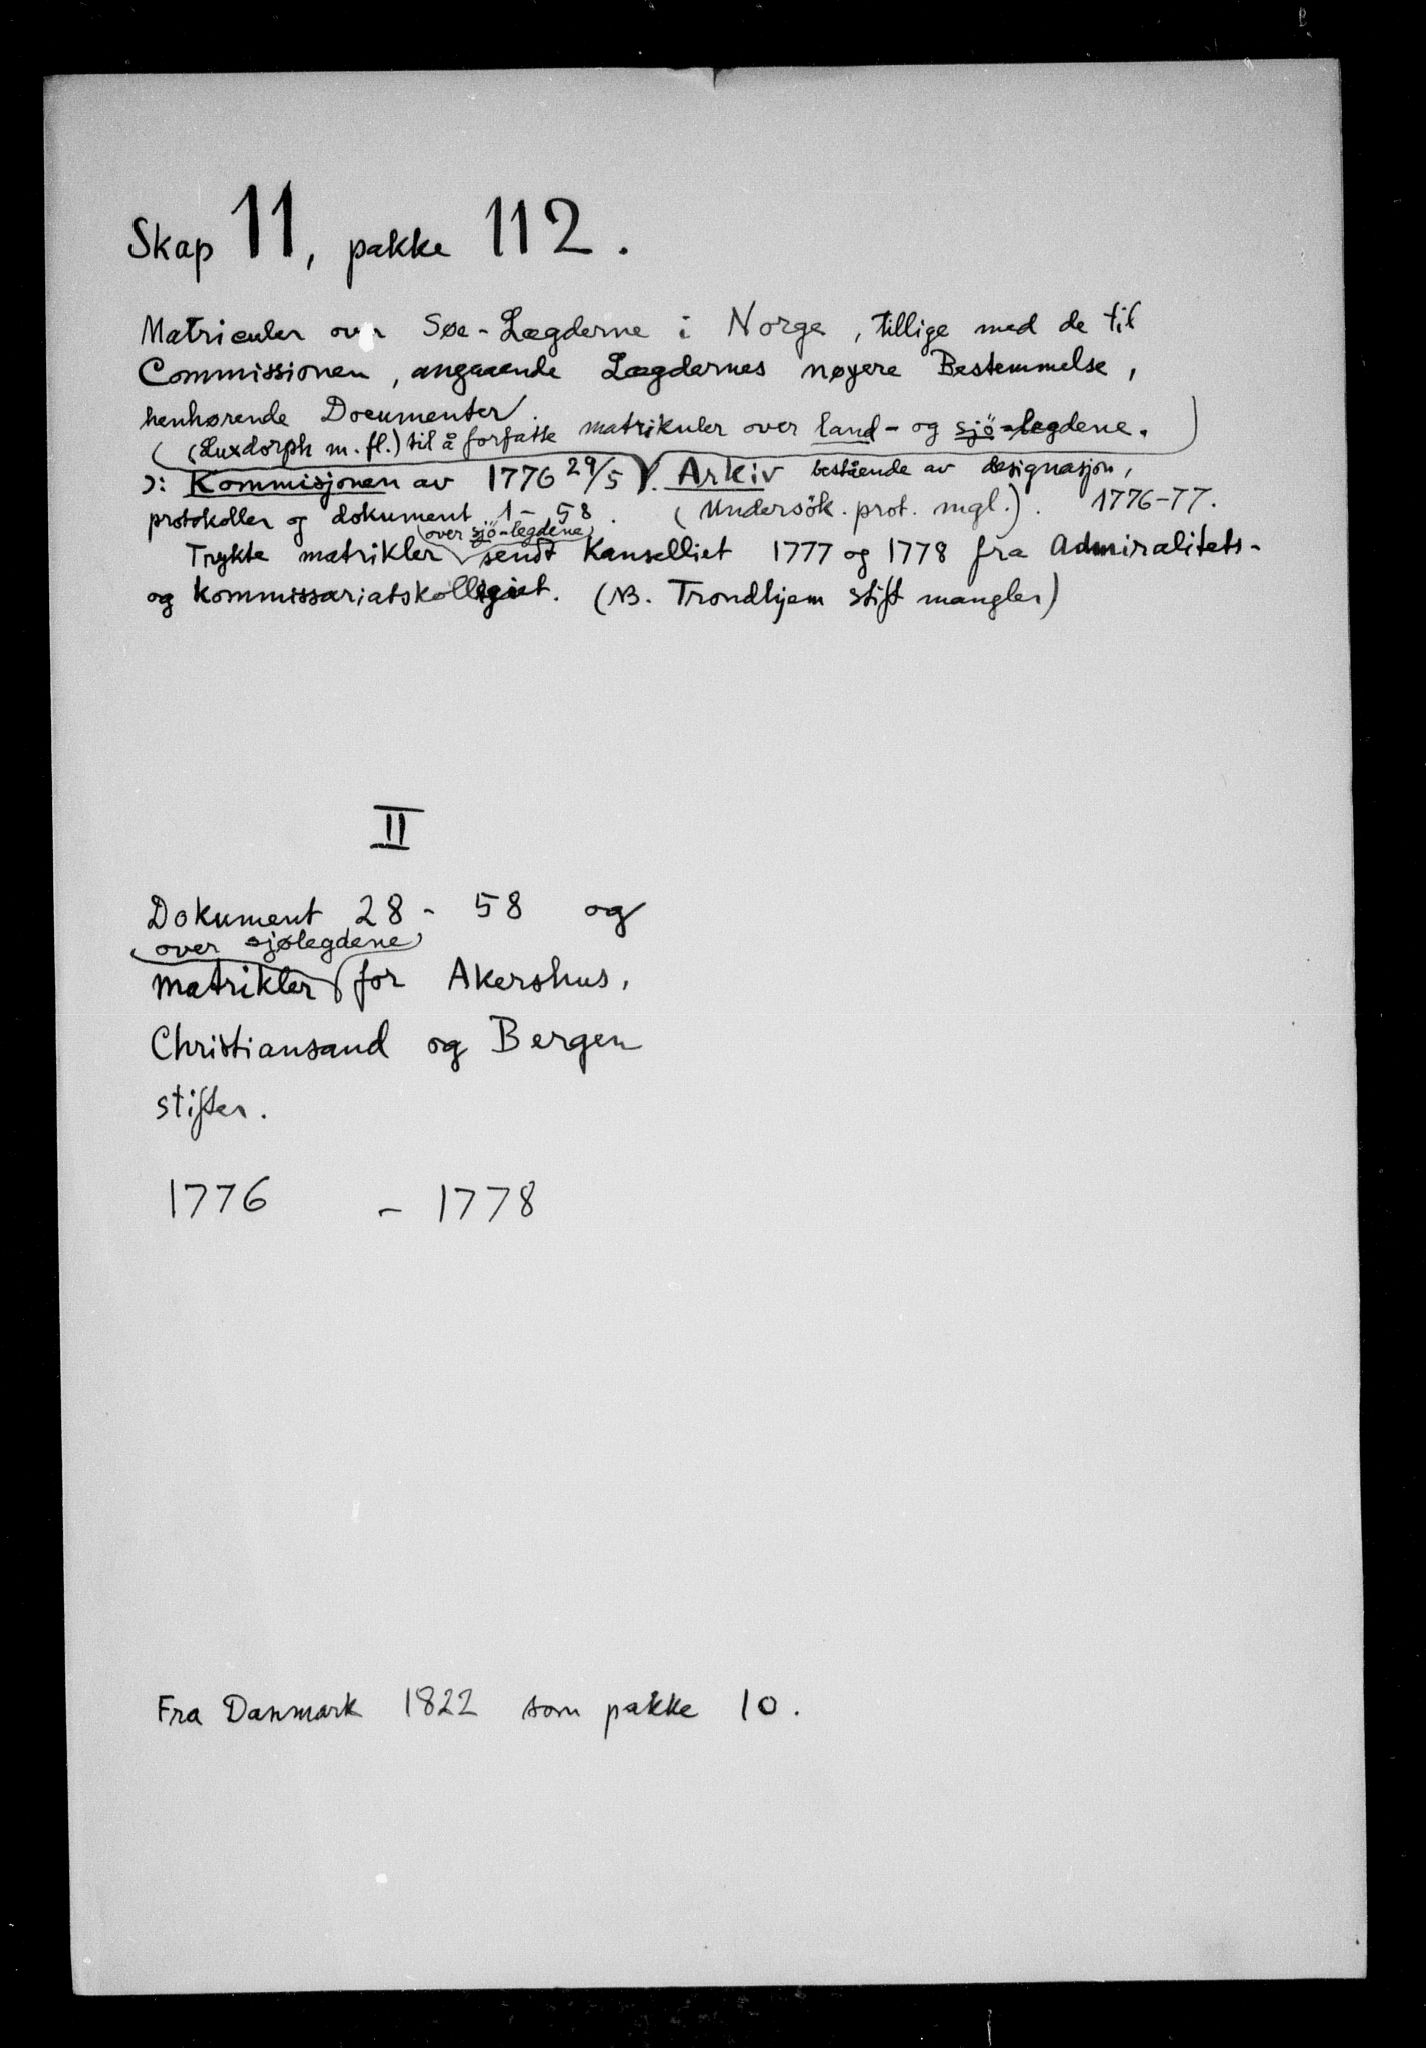 Skap 11, pakke 112.
Matriculer over Søe-Lægderne i Norge, tillige med de til
Commissionen, angaaende Lægdernes nøyere Bestemmelse,
henhørende Documenter.
(Luxdorph m. fl.) til å forfatte matrikuler over land- og sjö-legdene.
ɔ: Kommisjonen av 1776 29/5. Arkiv bestående av designasjon,
protokoller og dokument 1-58. (Undersök. prot. mgl.). 1776-77.
over sjö-legdene
Trykte matrikler sendt Kanselliet 1777 og 1778 fra Admiralitets-
og kommissariatskollegiet. (NB. Trondhjem stift mangler)
II
Dokument 28 - 58 og
over sjølegdene
matrikler for Akershus,
Christiansand og Bergen
stifter.
1776 - 1778
Fra Danmark 1822 som pakke 10.